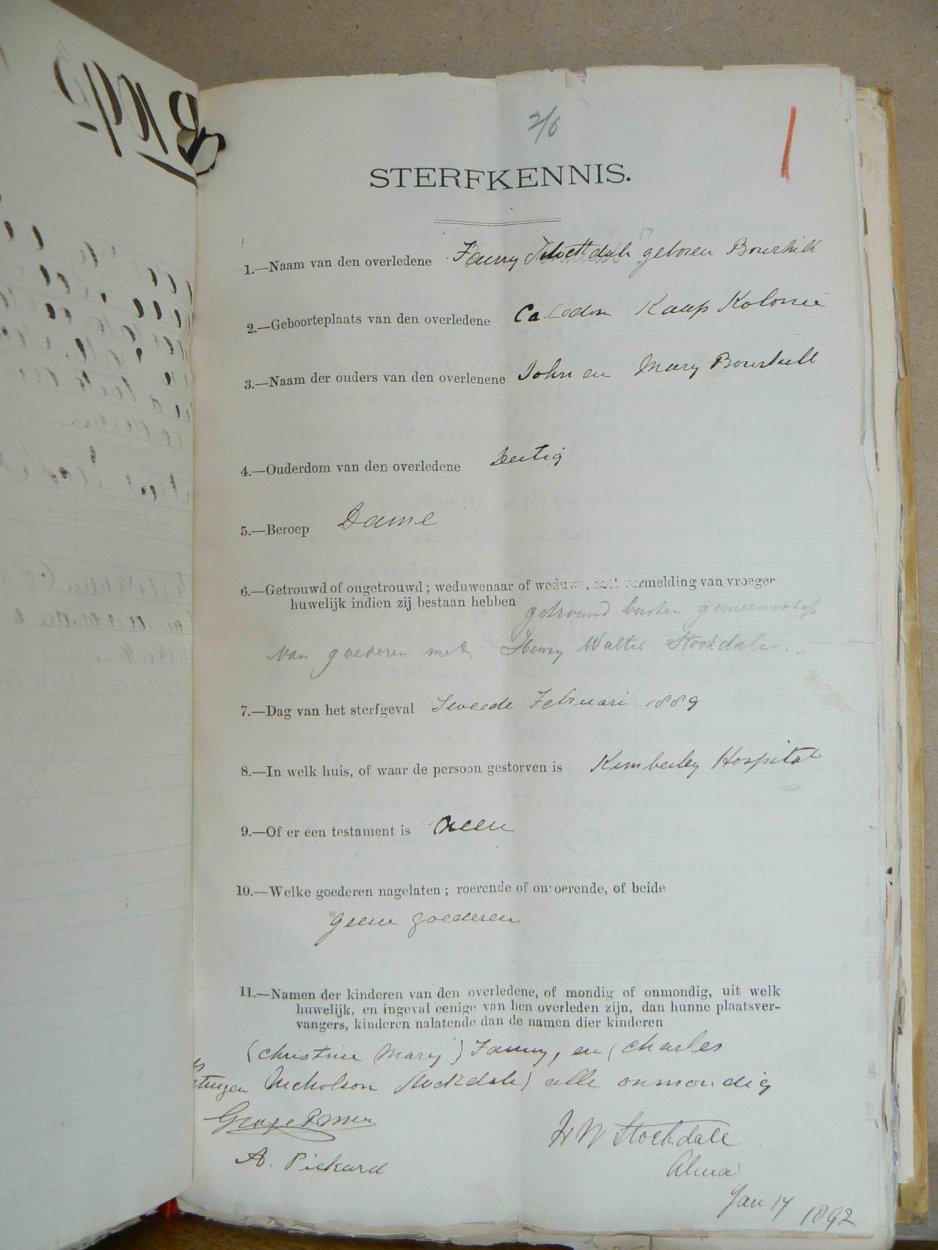 2/6
STERFKENNIS.
1.—Naam van den overledene Fanny Stockdale geboren Bourhill
2.—Geboorteplaats van den overledene Caledon Kaap Kolonie
3.—Naam der ouders van den overlenene John en Mary Bourhill
4.—Ouderdom van den overledene Dertig
5.—Beroep Dame
6.—Getrouwd of ongetrouwd; weduwenaar of weduwe, met vermelding van vroeger
huwelijk indien zij bestaan hebben getrouwd buiten gemeenschap
van goederen met Henry Walter Stockdale.
7.—Dag van het sterfgeval Tweede Februari 1889
8.—In welk huis, of waar de persoon gestorven is Kimberley Hospital
9.—Of er een testament is Neen
10.—Welke goederen nagelaten; roerende of onroerende, of beide
geene goederen
11.—Namen der kinderen van den overledene, of mondig of onmondig, uit welk
huwelijk, en ingeval eenige van hen overleden zijn, dan hunne plaatsver-
vangers, kinderen nalatende dan de namen dier kinderen
(Christine Mary) Fanny, en (Charles
Nicholson Stockdale) alle onmondig
H W Stockdale
A. Pickard
Alma
Jan 14 1892